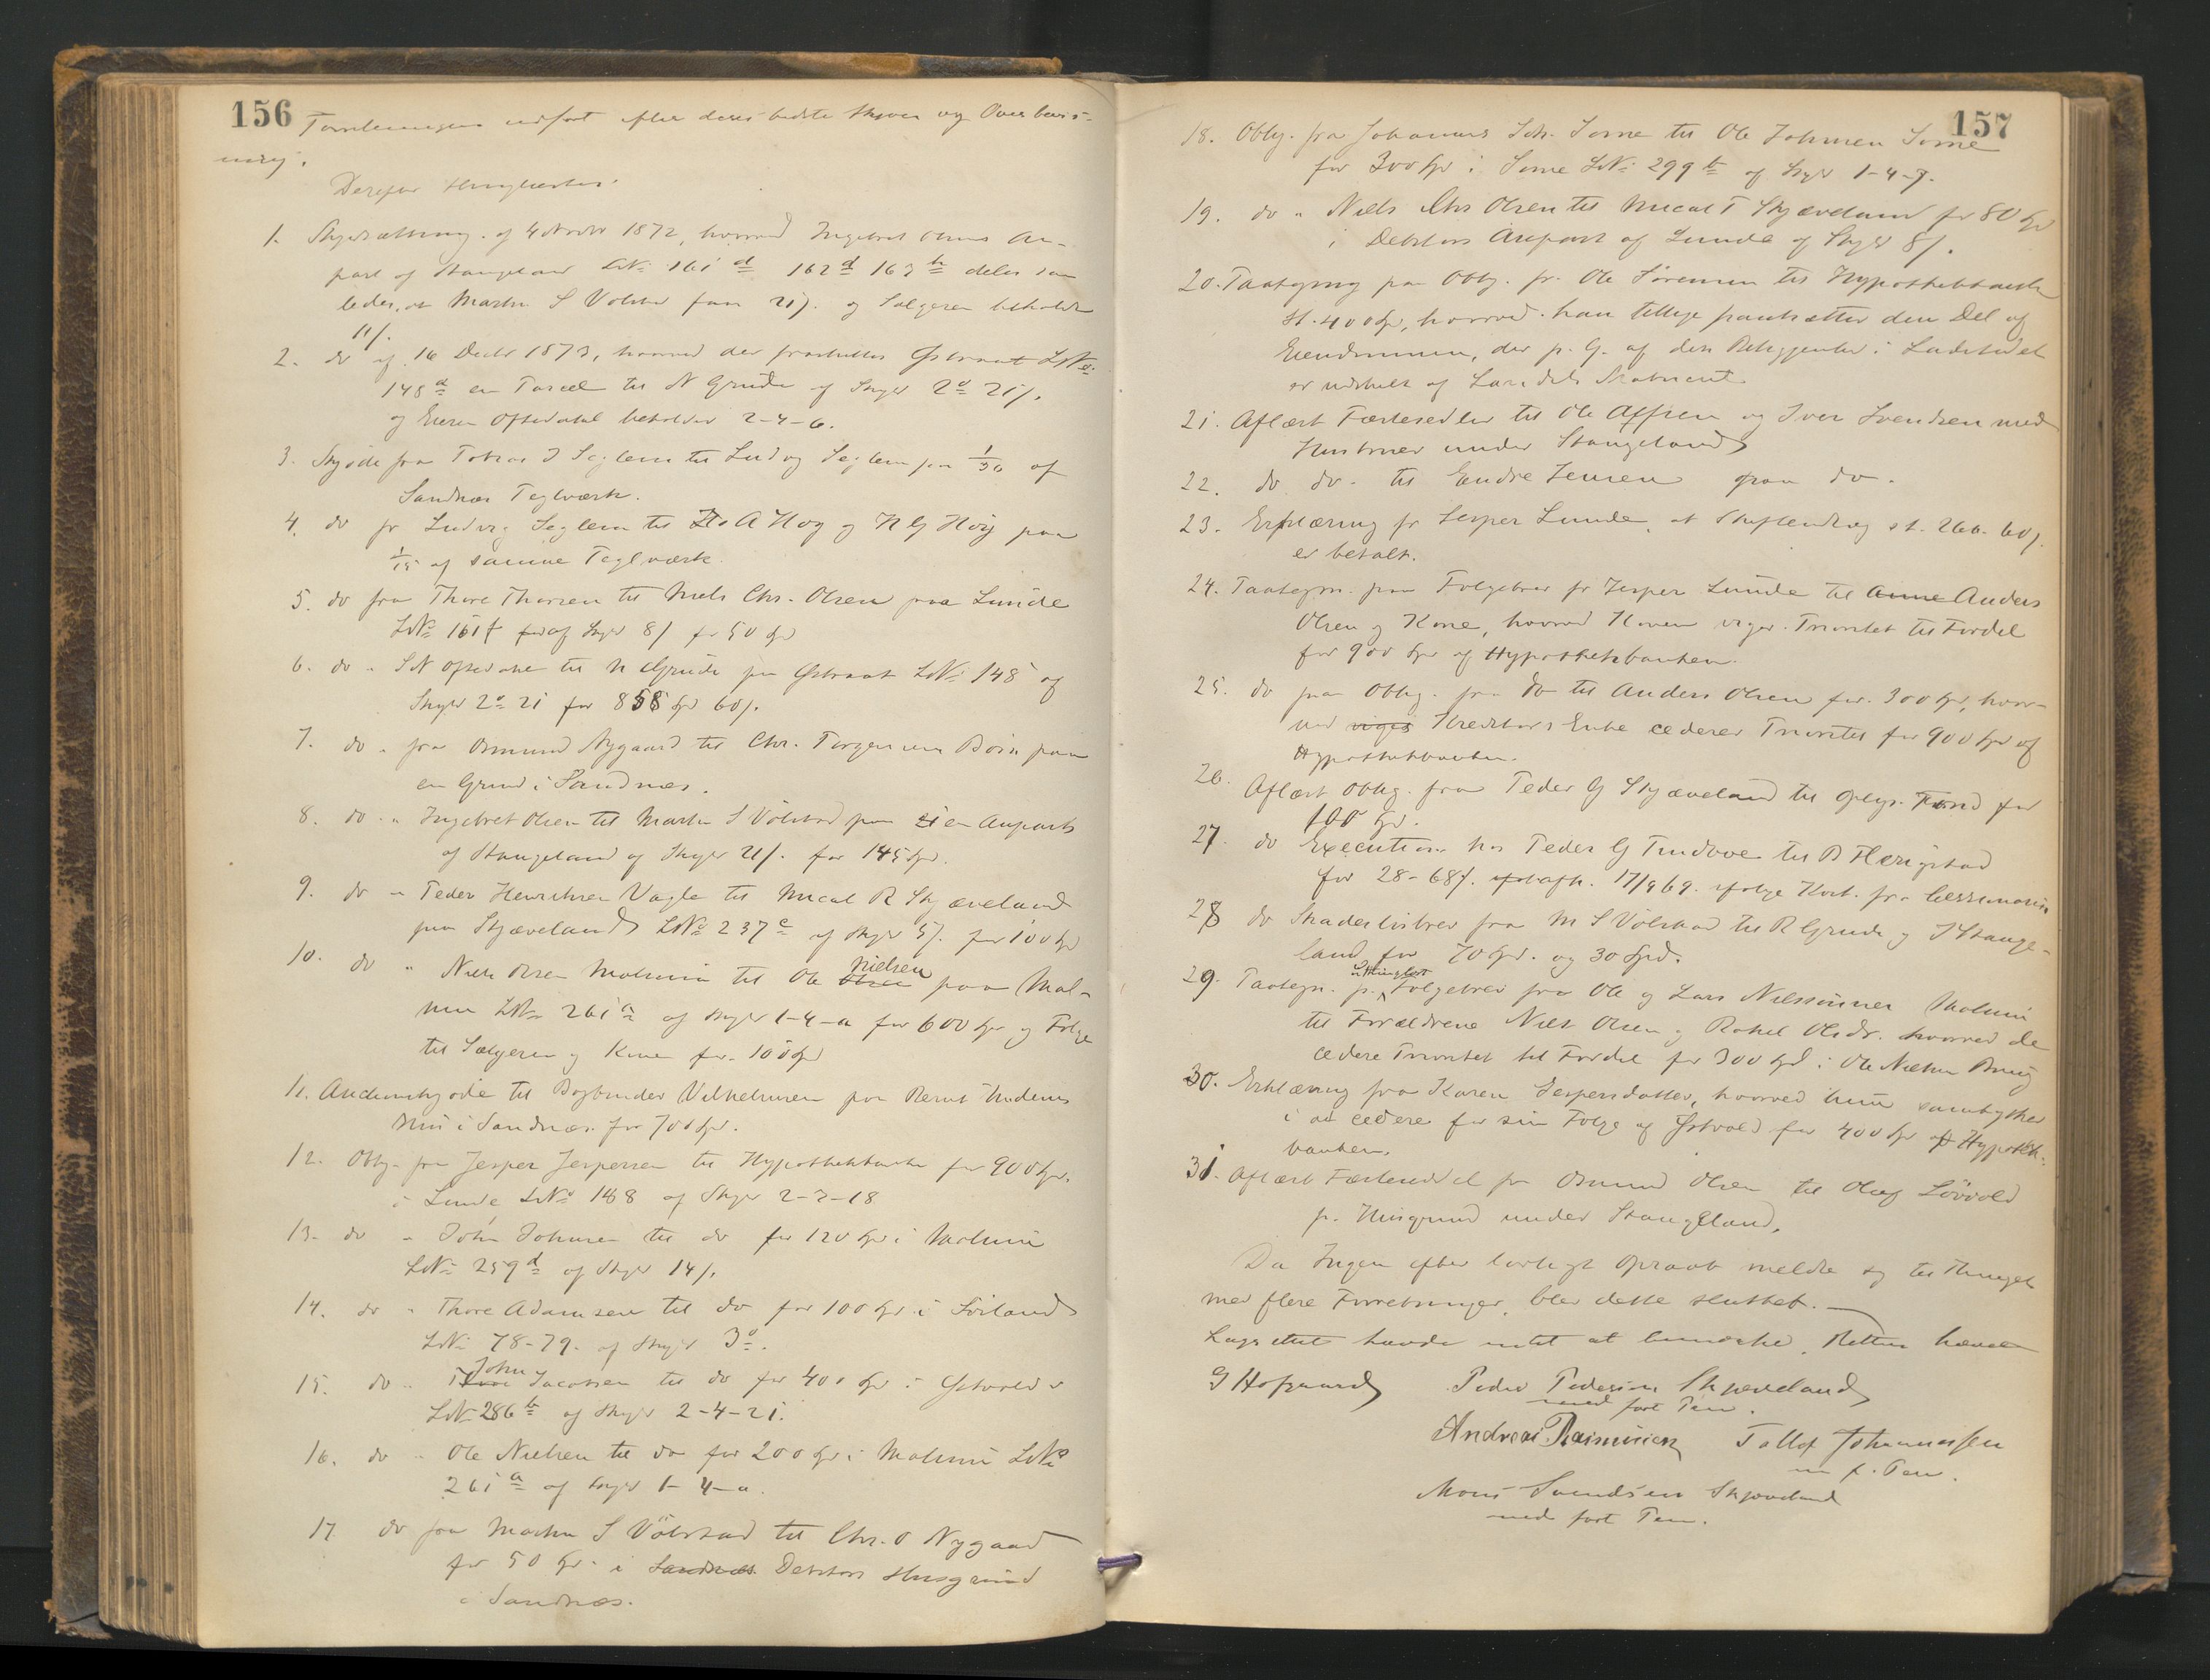 156
Forretningen udført efter deres bedste Skjøn og Overbevis-
ning.
Derefter thinglæstes:
1. Skyldsætning af 4 Novbr 1872, hvorved Ingebret Olsens An-
part af Stangeland LNo 161 d 162 d 163 b deles saa
ledes, at Martin S Völstad faar 21/. og Sælgeren beholder
11/.
2. do af 16 Decbr 1873, hvorved der fraskilles Østraat LNo
148 d en Parcel til N Grude af Skyld 2 o 21/.
og Eieren Oftedahl beholder 2-4-6.
3. Skjøde fra Tobias J Seglem til Ludvig Seglem paa 1/30 af
Sandnæs Teglværk.
4. do fr Ludvig Seglem til A Høy og H G Høiy paa
1/15 af samme Teglværk.
5. do fra Thore Thorsen til Niels Chr. Olsen paa Lunde
LNo 151 f af Skyld 8/ for 50 Spd
6. do " S N Oftedahl til N Grude paa Østraat LNo 148 af
Skyld 2 o 21 for 858 Spd 60/.
7. do " fra Osmund Nygaard til Chr. Torgersen Boin paa
en Grund i Sandnæs.
8. do " Ingebret Olsen til Martin S Völstad paa en Anpart
af Stangeland af Skyld 21/. for 145 Spd.
9. do " Peder Henriksen Vagle til Mical R Skjæveland
paa Skjæveland LNo 237 c af Skyld 5/. for 100 Spd
10. do " Niels Olsen Malmin til Ole Olsen Nielsen paa Mal-
min LNo 261 a af Skyld 1-4-a for 600 Spd og Følge
til Sælgeren og Kone for 100 Spd
11. Auctionsskjøde til Bogbinder Vilhelmsen paa Bernt
Huus i Sandnæs for 700 Spd.
12. Oblig. fra Jesper Jespersen til Hypothekbanken for 900 Spd.
i Lunde LNo 148 af Skyld 2-3-18
13. do " John Johnsen til do for 120 Spd i Malmin
LNo 259 d af Skyld 14/.
14. do " Thore Adamsen til do for 100 Spd i Sviland
LNo 78-79 af Skyld 3 o.
15. do " John Jacobsen til do for 400 Spd i Østvold
LNo 286 b af Skyld 2-4-21.
16. do " Ole Nielsen til do for 200 Spd i Malmin LNo
261 a af Skyld 1-4-a.
17 do fra Martin S Völstad til Chr. O Nygaard
for 50 Spd. i Sandnæs Debitors Husgrund
i Sandnæs.
157
18. Oblig. fra Johannes Joh. Some til Ole Johnsen Some
for 300 Spd i Some LNo 299 b af Skyld 1-4-9.
19. do " Niels Chr Olsen til Mical T Skjæveland for 80 Spd
i Debitors Anpart af Lunde af Skyld 8/.
20. Paategning paa Oblig. fr. Ole Sørensen til Hypothekbanken
st. 400 Spd, hvorved han tillige pantsætter den Del af
Eiendommen, der p. G. af dens Beliggenhed i Ladestedet
er udskilt af Landets Matricul.
21. Aflæst Fæstesedler til Ole Affsen og Iver Svendsen med
Hustruer under Stangeland
22. do do. til Endre Jensen paa do.
23. Erklæring fr Jesper Lunde, at Skiftendlæg st. 266-60/.
er betalt.
24. Paategn. paa Følgebrev fr Jesper Lunde til Anne Anders
Olsen og Kone, hvorved Konen viger Prioritet til Fordel
for 900 Spd af Hypothekbanken.
25. do paa Oblig. fra do til Anders Olsen for 300 Spd, hvor-
ved viges Kreditors Enke cederer Prioritet for 900 Spd af
Hypothekbanken.
26. Aflæst Oblig. fra Peder G Skjæveland til Oplys. Fond for
100 Spd.
27. do Execution hos Peder G til B Høigstad
for 28-68/. afh. 17/9 69. ifølge Kort. fra Cessionarius
28 do Skadesløsbrev fra M S Völstad til R Grude og J Stange-
land for 70 Spd. og 30 Spd.
29. Paategn. p. uthinglæst Følgebrev fra Ole og Lars Nilssønner Malmin
til Forældrene Niels Olsen og Rakel Olsdr. hvorved de
cedere Prioritet til Fordel for 300 Spd i Ole Nielsens Brug
30. Erklæring fra Karen Jespersdatter, hvorved hun samtykker
i at cedere for sin Følge af Østvold for 400 Spd af Hypothek-
banken.
31. Aflæst Fæsteseddel fra Osmund Olsen til Olaf Lövvold
p. Husgrund under Stangeland.
Da Ingen efter lovligt Opraab meldte sig til Thinget
med flere Forretninger, blev dette sluttet. —
Lagrettet havde intet at bemærke. Retten hævet
G Hofgaard Peder Pedersen Skjæveland
med ført Pen.
Andreas Rasmusen Tollef Johannessen
m f. Pen.
Mons Svendsen Skjæveland
med ført Pen.